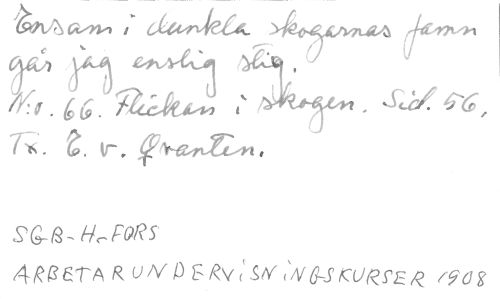 Ensam i dunkla skogarnas famn
går jag enslig stig.
N:o. 66. Flickan i skogen. Sid. 56.
Tx. E. v. Qvanten.
SGB-H-FORS
ARBETARUNDERVISNINGSKURSER 1908